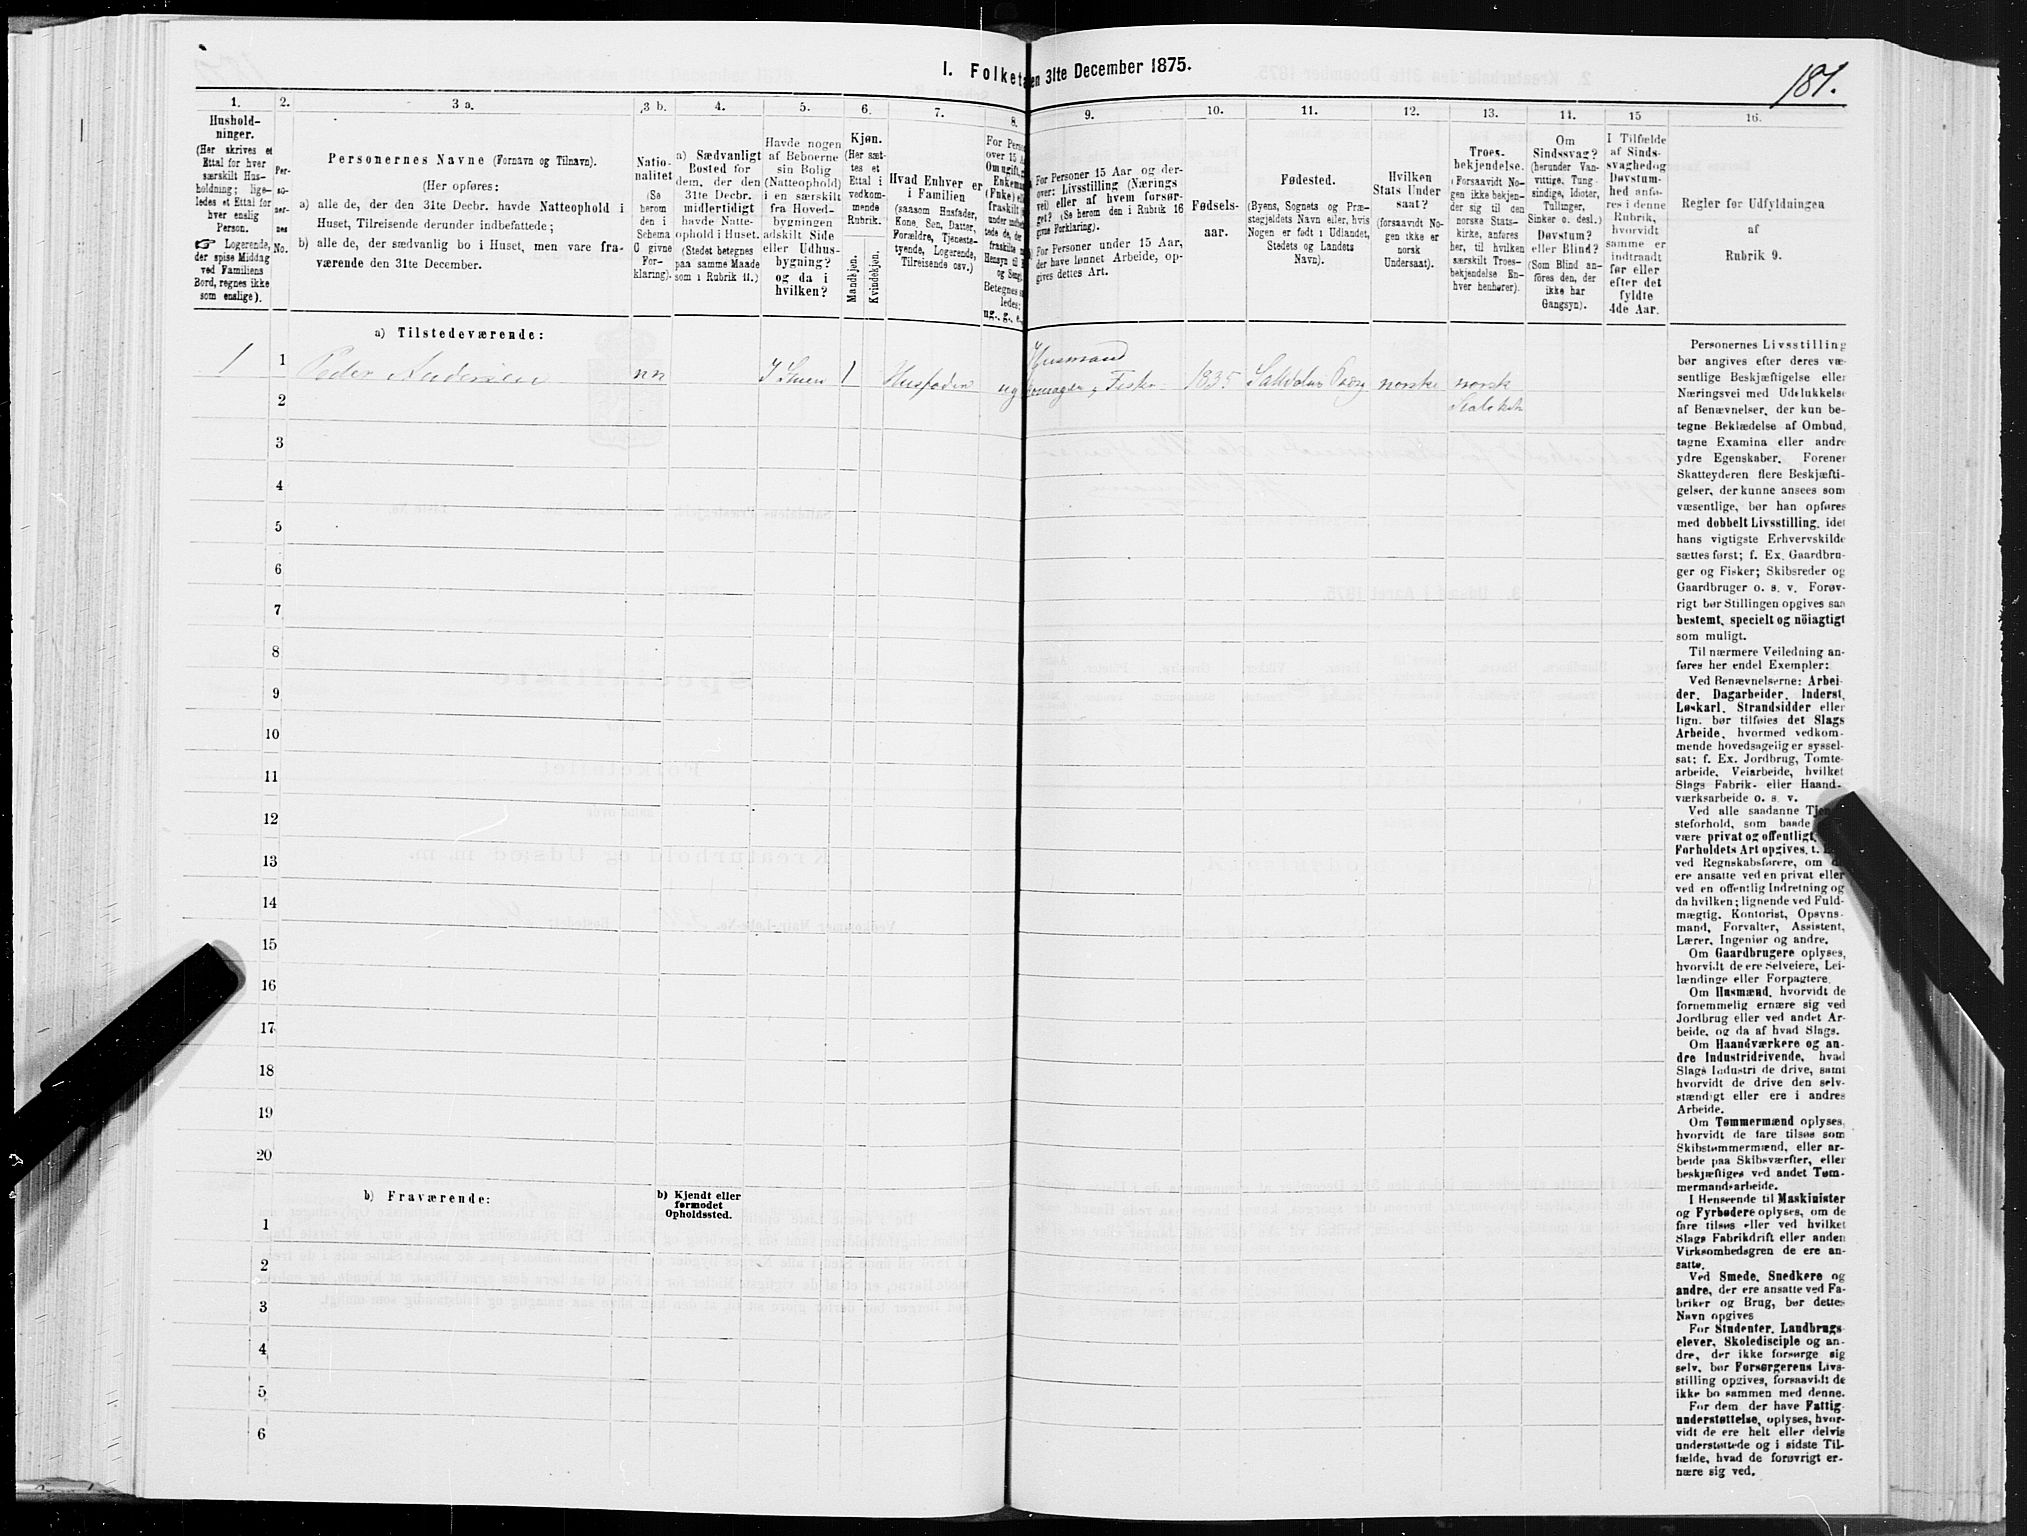 I. Folketa
en 31te December 1875.
181.
1.
2.
3 a.
3 b.
4.
5.
6.
7.
8.
9.
10.
11.
12.
13.
14.
15
16.
Hushold-
ninger.
(Her skrives et
Ettal for hver
særskilt Hus-
holdning; lige-
ledes et Ettal for
hver enslig
Person.
☞ Logerende,
der spise Middag
ved Familiens
Bord, regnes ikke
som enslige).
Per-
so-
ner-
nes
No.
Personernes Navne (Fornavn og Tilnavn).
(Her opføres:
a) alle de, der den 31te Decbr. havde Natteophold i
Huset, Tilreisende derunder indbefattede;
b) alle de, der sædvanlig bo i Huset, men vare fra-
værende den 31te December.
Natio-
nalitet
(Se
herom
den i
Schema
C givne
For-
klaring).
a) Sædvanligt
Bosted for
dem, der den
31te Decbr.
midlertidigt
havde Natte-
ophold i Huset.
(Stedet betegnes
paa samme Maade
som i Rubrik 11.)
Havde nogen
af Beboerne
sin Bolig
(Natteophold)
i en særskilt
fra Hoved-
bygningen
adskilt Side
eller Udhus-
bygning?
og da i
hvilken?
Kjøn.
(Her sæt-
tes et
Ettal i
vedkom-
mende
Rubrik.
Mandkjøn.
Kvindekjøn.
Hvad Enhver er
i Familien
(saasom Husfader,
Kone, Søn, Datter,
Forældre, Tjeneste-
tyende, Logerende,
Tilreisende osv.)
For Pers
over 15 A
Om ugift,
Enkema
(Enke) el
fraskilt
Betegnes
ledes:
ug., g., e.,
For Personer 15 Aar og der-
over: Livsstilling (Nærings
vei) eller af hvem forsør-
get? (Se herom den i Rubrik 16
givne Forklaring).
For Personer under 15 Aar,
der have lønnet Arbeide, op-
gives dettes Art.
Fødsels-
aar.
Fødested.
(Byens, Sognets og Præ-
stegjeldets Navn eller, hvis
Nogen er født i Udlandet,
Stedets og Landets
Navn).
Hvilken
Stats Under
saat?
(forsaavidt No-
gen ikke er
norsk
Undersaat).
Troes-
bekjendelse.
(Forsaavidt No-
gen ikke bekjen-
der sig til den
norske Stats-
kirke, anføres
her, til hvilken
særskilt Troes-
bekjendelse En-
hver henhører).
Om
Sindssvag?
(herunder Van-
vittige, Tung
sindige, Idioter,
Tullinger,
Sinker o. desl.)
Døvstum?
eller Blind?
(Som Blind an-
føres den, der
ikke har
Gangsyn).
I Tilfælde
af Sinds-
svaghed og
Døvstum-
hed anfø-
res i denne
Rubrik,
hvorvidt
samme er
indtraadt
før eller
efter det
fyldte
4de Aar.
Regler for Udfyldningen
af
Rubrik 9.
a) Tilstedeværende:
1
1
Peder Andersen
nn
I Stuen
1
Husfader
ug
Husmand
Fisker
1835
norske
norsk
Statskirk
2
3
4
5
6
7
8
9
10
11
12
13
14
15
16
17
18
19
20
b) Fraværende:
b) Kjendt eller
formodet
Opholdssted.
1
2
3
4
5
6
Personernes Livsstilling
bør angives efter deres væ-
sentlige Beskjæftigelse eller
Næringsvei med Udelukkelse
af Benævnelser, der kun be-
tegne Beklædelse af Ombud,
tagne Examina eller andre
ydre Egenskaber. Forener
Skatteyderen flere Beskjæfti-
gelser, der kunne ansees som
væsentlige, bør han opføres
med dobbelt Livsstilling, idet
hans vigtigste Erhvervskilde
sættes først; f. Ex. Gaardbru-
ger og Fisker; Skibsreder og
Gaardbruger o. s. v. Forøv-
rigt bør Stillingen opgives saa
bestemt, specielt og nöiagtigt
som muligt.
Til nærmere Veiledning an-
føres her endel Exempler:
Ved Benævnelserne: Arbei-
der, Dagarbeider, Inderst,
Løskarl, Strandsidder eller
lign. bør tilføies det Slags
Arbeide, hvormed vedkom-
mende hovedsagelig er syssel-
sat; f. Ex. Jordbrug, Tomte-
arbeide, Veiarbeide, hvilket
Slags Fabrik- eller Haand-
værksarbeide o. s. v.
Ved alle saadanne Tjen
steforhold, som baade
være privat og offentligt,
Forholdets Art opgives, t.
ved Regnskabsførere, om d
ere ansatte ved en privat eller
ved en offentlig Indretning og
da hvilken; lignende ved Fuld-
mægtig, Kontorist, Opsyns-
mand, Forvalter, Assistent,
Lærer, Ingeniør og andre.
Om Gaardbrugere oplyses,
hvorvidt de ere Selveiere, Lei-
lændinge eller Forpagtere.
Om Husmænd, hvorvidt de
fornemmelig ernære sig ved
Jordbrug eller ved andet Ar-
beide, og da af hvad Slags.
Om Haandværkere og an-
dre Industridrivende, hvad
Slags Industri de drive, samt
hvorvidt de drive den selv-
stændigt eller ere i andres
Arbeide.
Om Tømmermænd oplyses,
hvorvidt de fare tilsøs som
Skibstømmermænd, eller ar-
beide paa Skibsværfter, eller
beskjæftiges ved andet Tøm-
mermandsarbeide.
I Henseende til Maskinister
og Fyrbødere oplyses, om de
fare tilsøs eller ved hvilket
Slags Fabrikdrift eller anden
Virksomhedsgren de ere an-
satte.
Ved Smede, Snedkere og
andre, der ere ansatte ved Fa-
briker og Brug, bør dettes
Navn opgives
For Studenter, Landbrugs-
elever, Skoledisciple og an-
dre, der ikke forsørge sig
selv, bør Forsørgerens Livs-
stilling opgives, forsaavidt de
ikke bo sammen med denne.
For dem der have Fattig-
understøttelse, oplyses, hvor-
vidt de ere helt eller delvis
understøttede og i sidste Til-
fælde, hvad de forøvrigt er-
nære sig ved.